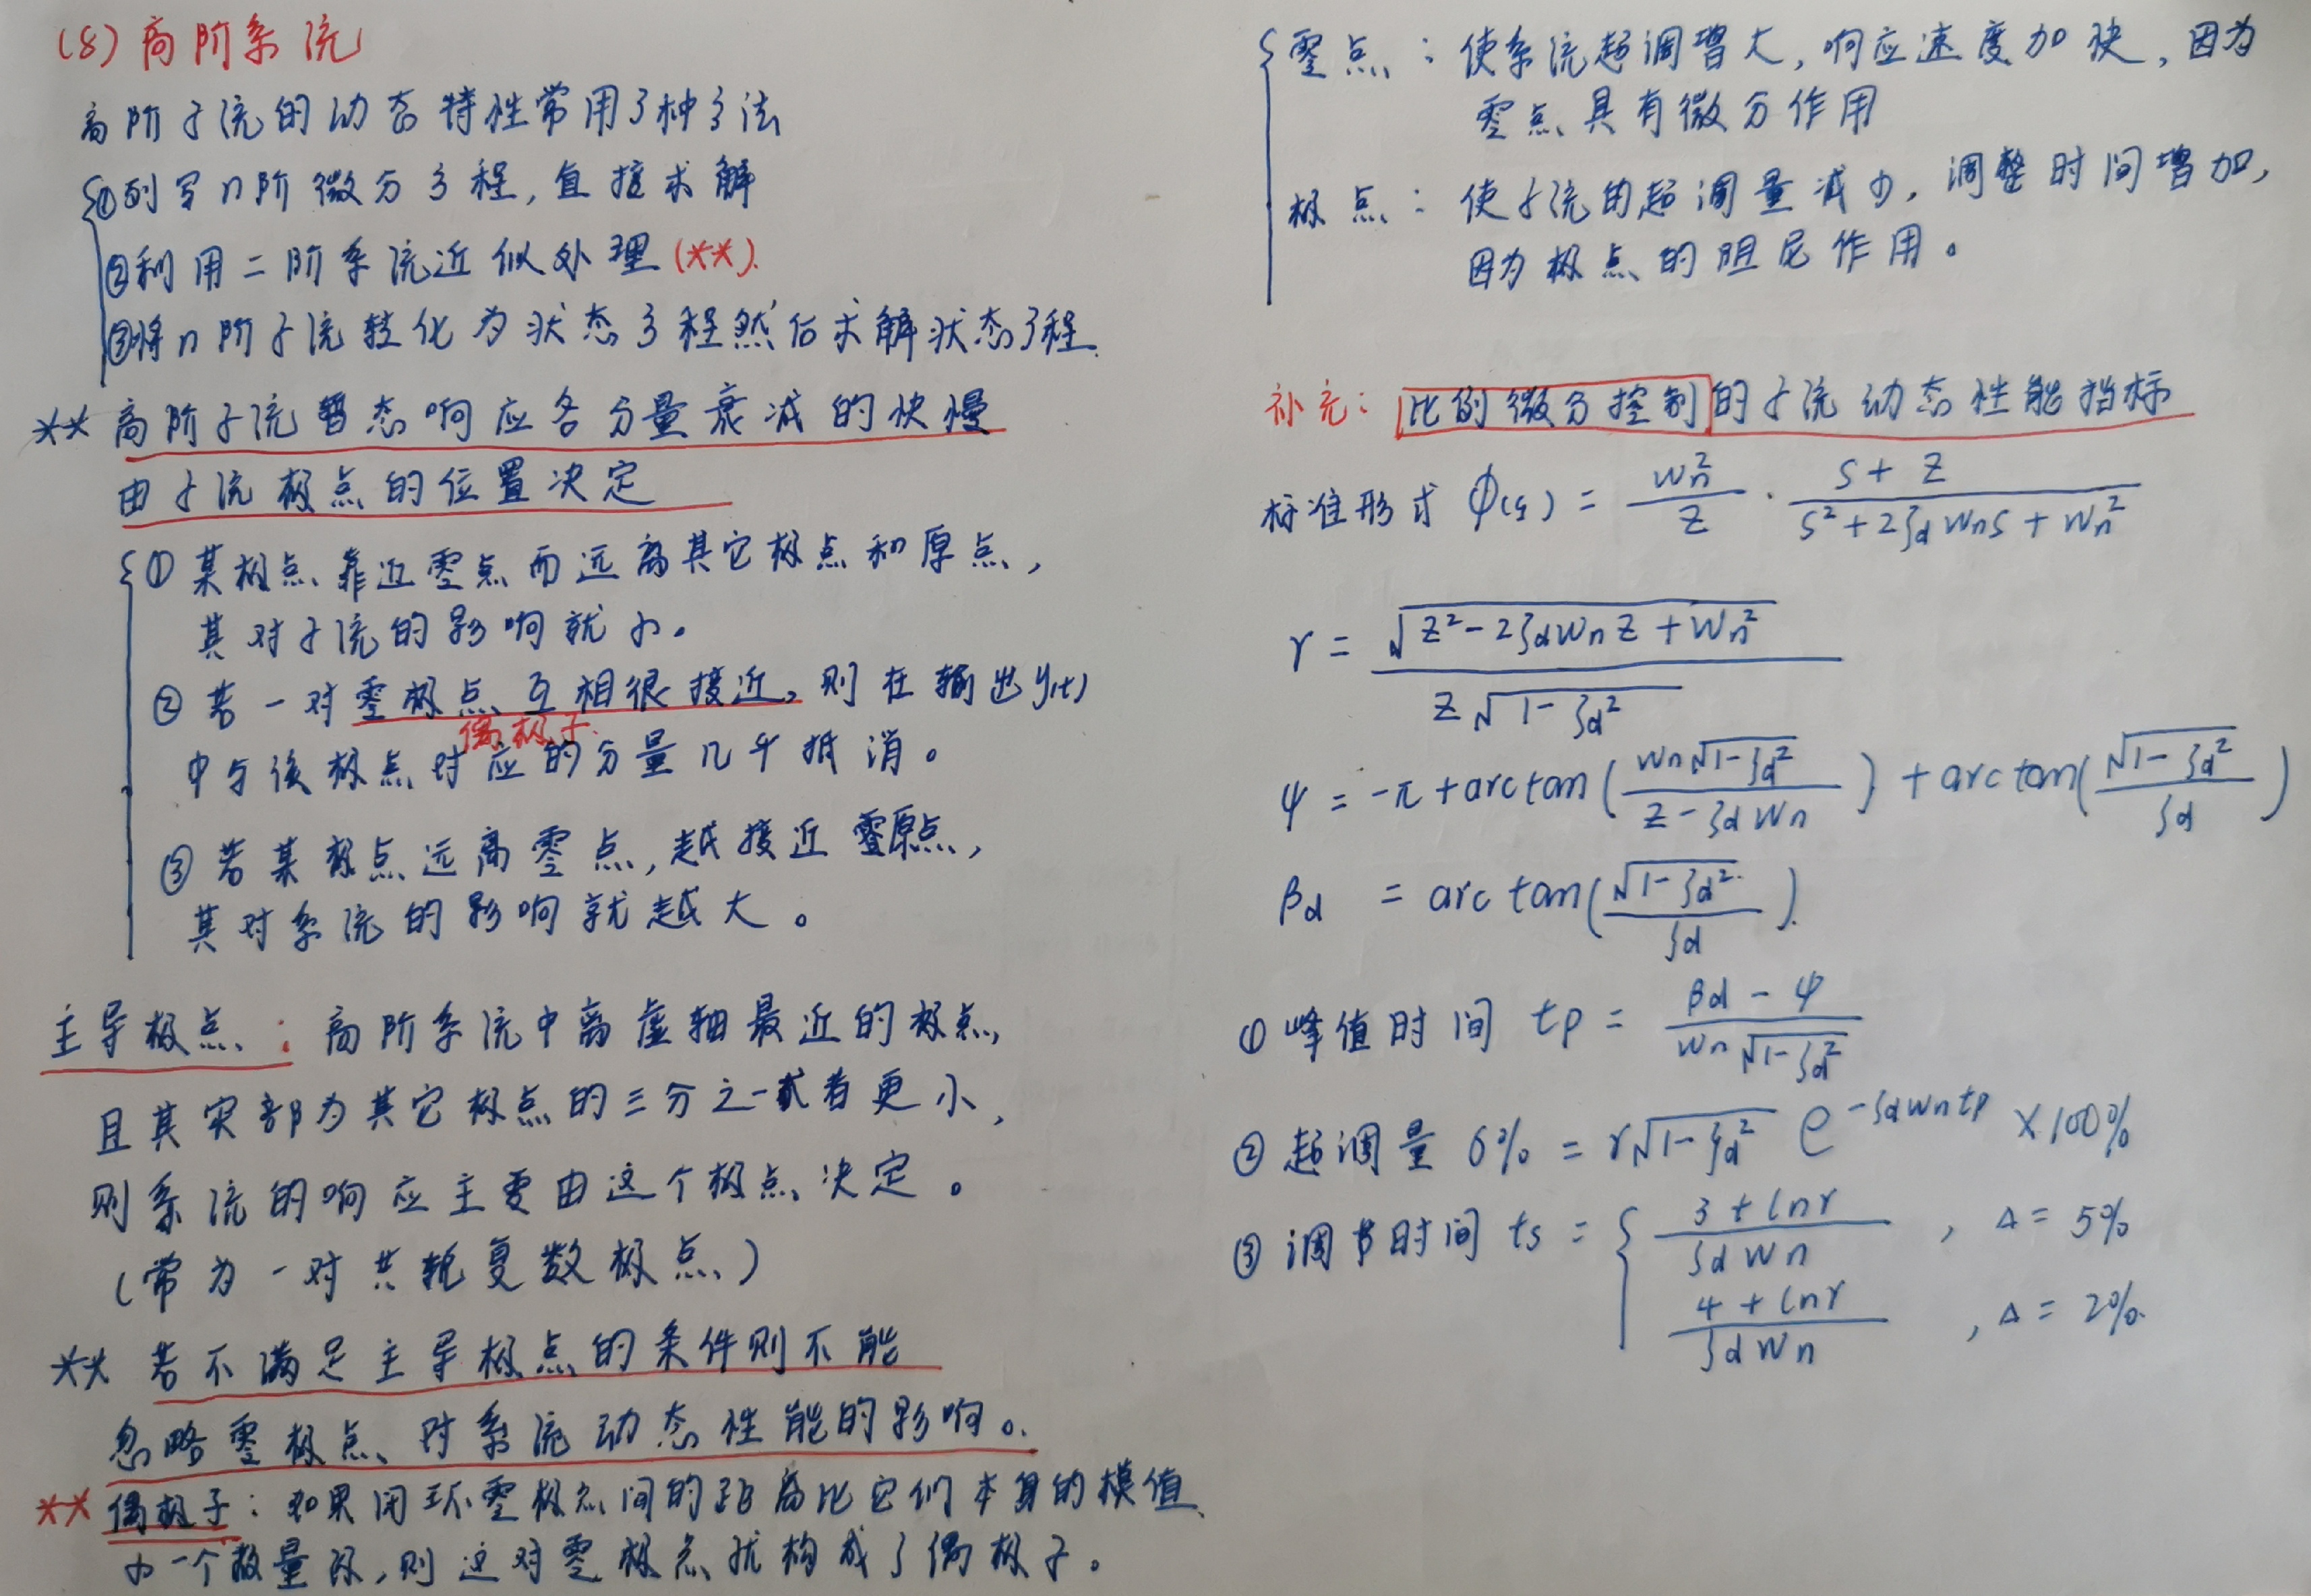 (8) 高阶系统
高阶系统的动态特性常用3种方法
①列写n阶微分方程,直接求解
②利用二阶系统近似处理(**).
③将n阶系统转化为状态方程然后求解状态方程.
** 高阶系统暂态响应各分量衰减的快慢
由系统极点的位置决定
① 某极点靠近零点而远离其它极点和原点,
其对系统的影响就小。
② 若一对零极点互相很接近,则在输出y(t)
偶极子.
中与该极点对应的分量几乎抵消。
③ 若某极点远离零点,越接近原点,
其对系统的影响就越大。
主导极点:高阶系统中离虚轴最近的极点,
且其实部为其它极点的三分之一或者更小,
则系统的响应主要由这个极点决定。
(常为一对共轭复数极点)
** 若不满足主导极点的条件则不能
忽略零极点对系统动态性能的影响。
** 偶极子:如果闭环零极点间的距离比它们本身的模值
小一个数量级,则这对零极点就构成了偶极子。
零点:使系统超调增大,响应速度加快,因为
零点具有微分作用
极点:使系统的超调量减少,调整时间增加,
因为极点的阻尼作用。
补充:比例微分控制的系统动态性能指标
标准形式 Φ(s) = \frac{ω_n^2}{z} · \frac{s+z}{s^2+2ζ_dω_ns+ω_n^2}
r = \frac{\sqrt{z^2-2ζ_dω_nz+ω_n^2}}{z\sqrt{1-ζ_d^2}}
ψ = -π+arctan(\frac{ω_n\sqrt{1-ζ_d^2}}{z-ζ_dω_n}) + arctan(\frac{\sqrt{1-ζ_d^2}}{ζ_d})
β_d = arctan(\frac{\sqrt{1-ζ_d^2}}{ζ_d}).
① 峰值时间 tp = \frac{β_d-ψ}{ω_n\sqrt{1-ζ_d^2}}
② 超调量 σ% = r\sqrt{1-ζ_d^2} e^{-ζ_dω_ntp} ×100%
③ 调节时间 ts = { \frac{3+lnr}{ζ_dω_n} , Δ=5%
\frac{4+lnr}{ζ_dω_n} , Δ=2%.